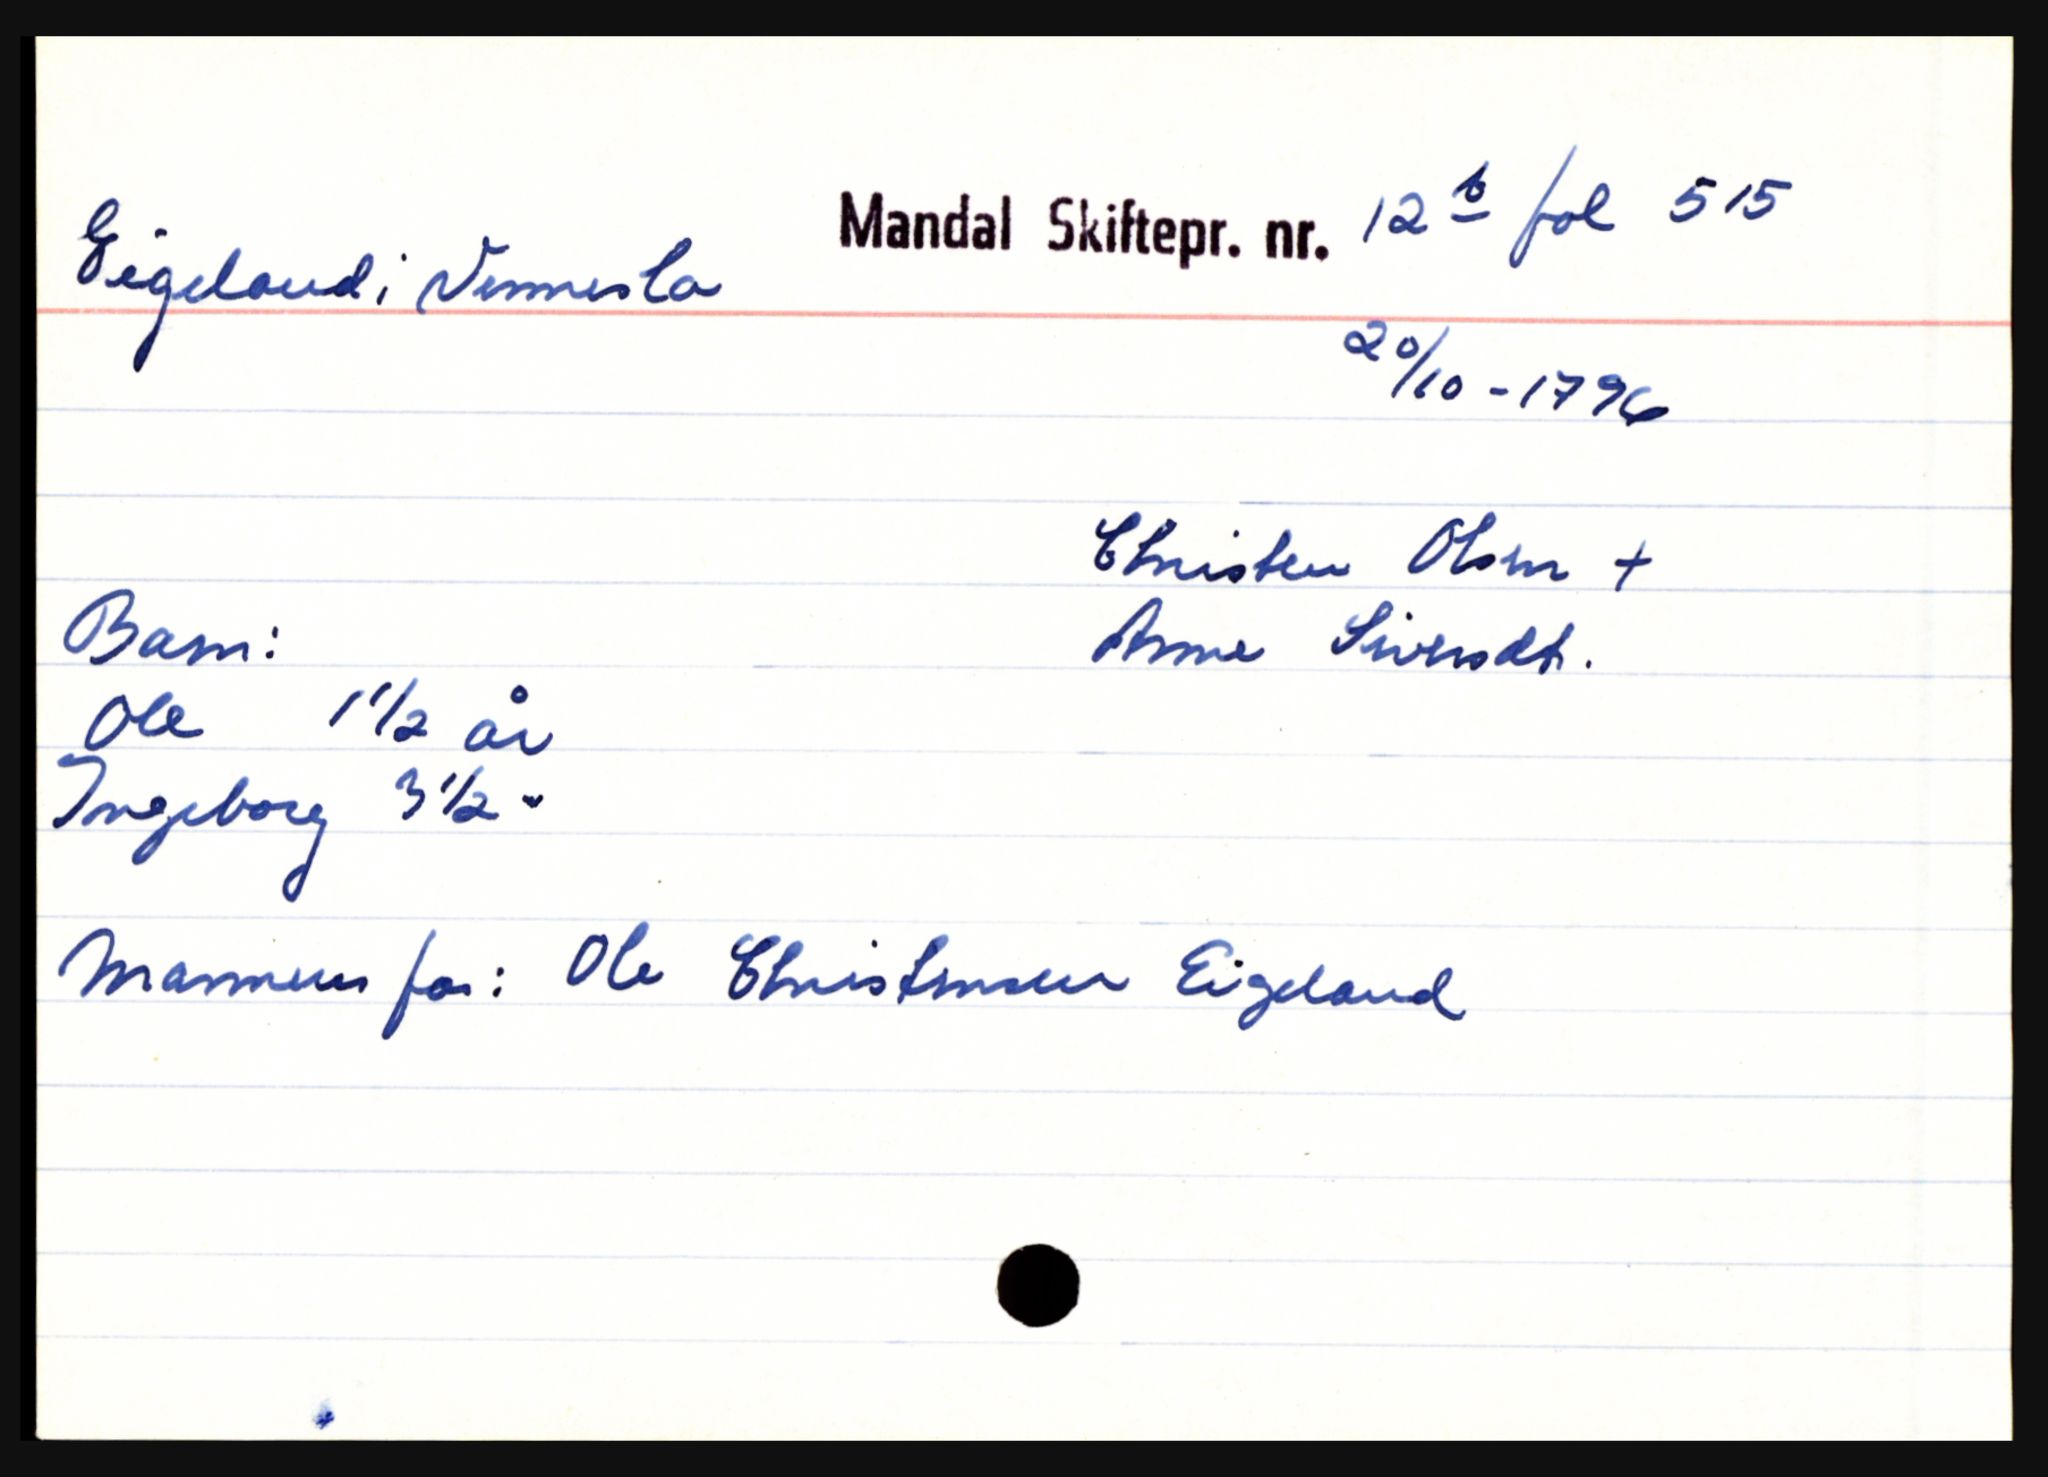 Mandal Skiftepr. nr. 12 b fol 515
Eigeland i Vennesla
20/10 - 1796
Christen Olsen +
Barn:
Anne Siversdt.
Ole 1 1/2 år
Ingeborg 3 1/2 "
Mannens far: Ole Christensen Eigeland